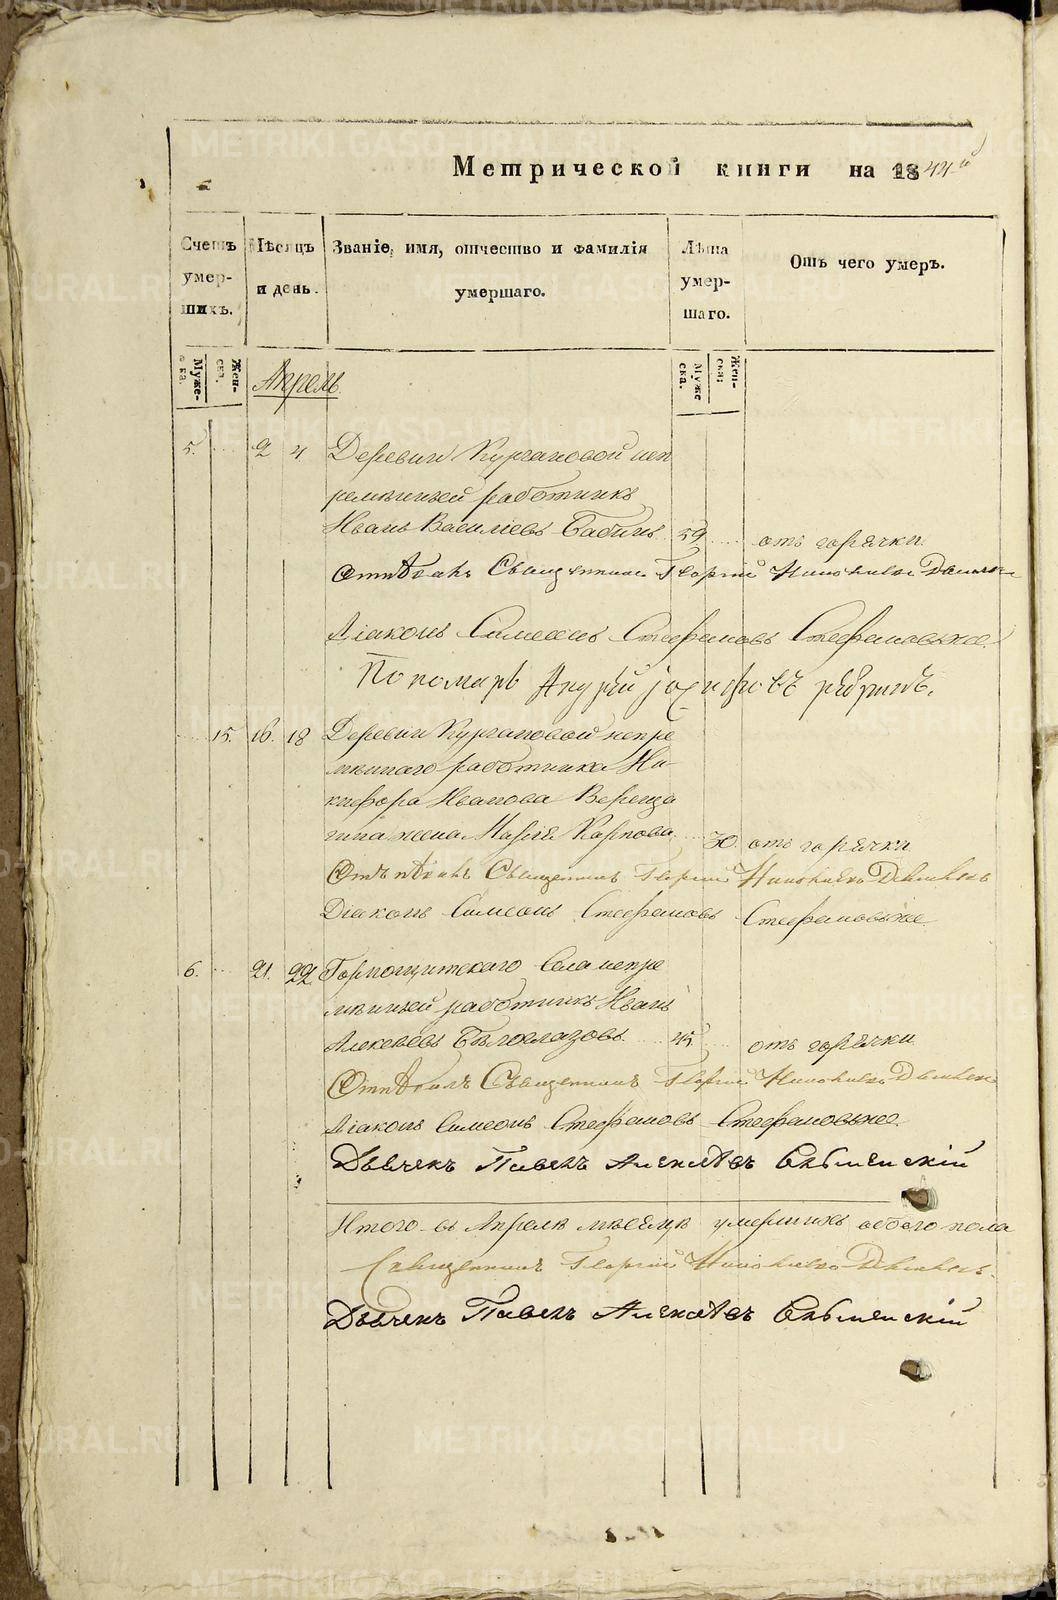 Метрической книги на 1844й
Счетъ умер- шихъ.
Мѣсяцъ и день.
Званіе, имя, отчество и фамилія умершаго.
Лѣта умер- шаго.
Отъ чего умеръ.
Муже- ска.
Жен- ска.
Муже ска.
Жен- ска.
Апрель
5. 2 4 Деревни Кургановой неп
ремѣнный работникъ
Иванъ Васильевъ Бабинъ 59 отъ горячки
Отпѣвалъ Священникъ Георгій
Діаконъ Симеонъ Стефановъ Стефановскій
Пономарь
15. 16. 18 Деревни Кургановой непре
мѣннаго работника Ни-
кифора Иванова Вереща
гина жена Марія Карпова 30. отъ горячки
Отпѣвалъ Священникъ Георгій
Діаконъ Симеонъ Стефановъ Стефановскій
6. 21. 22. Горнощитскаго Села непре
мѣнный работникъ Иванъ
Алексѣевъ Бѣлоглазовъ 45 отъ горячки
Отпѣвалъ Священникъ Георгій
Діаконъ Симеонъ Стефановъ Стефановскій
Дьячекъ Павелъ Алексѣевъ
Итого въ Апрелѣ мѣсяцѣ умершихъ обоего пола
Священникъ Георгій
Дьячекъ Павелъ Алексѣевъ
METRIKI.GASO-URAL.RU